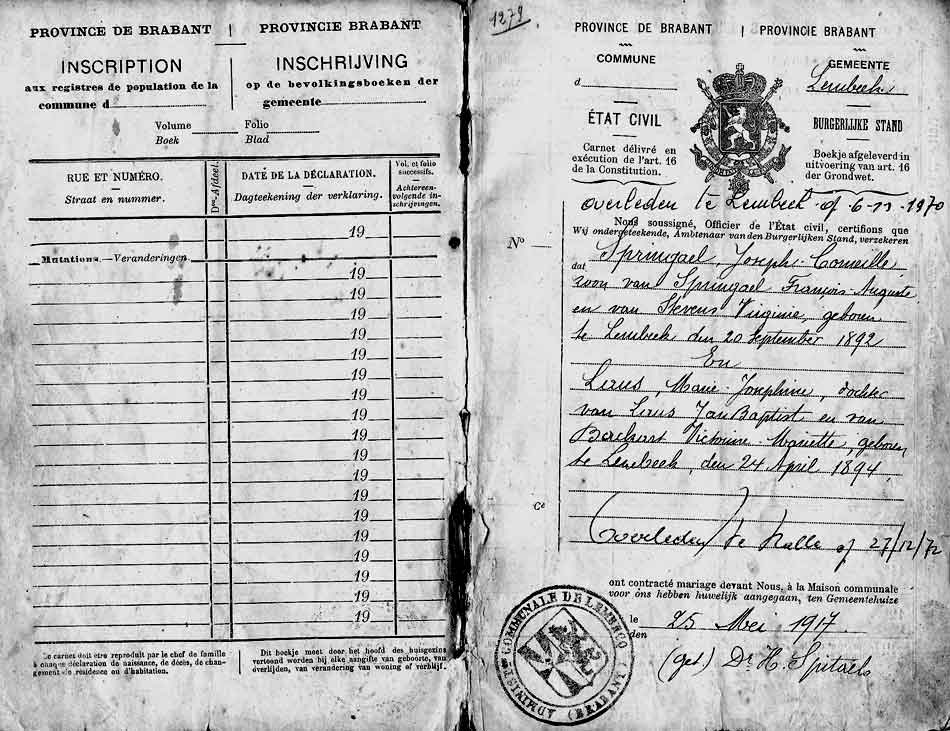 PROVINCE DE BRABANT | PROVINCIE BRABANT
INSCRIPTION
aux registres de population de la
commune d
INSCHRIJVING
op de bevolkingsboeken der
gemeente
Volume Folio
Boek Blad
RUE ET NUMÉRO.
Straat en nummer.
Don-Afdeel.
DATE DE LA DÉCLARATION.
Dagteekening der verklaring.
Vol. et folio
successifs.
Achtereen-
volgende in-
schrijvingen.
19
Mutations.—Veranderingen
19
19
19
19
19
19
19
19
19
19
19
19
19
19
19
19
19
19
Ce carnet doit être reproduit par le chef de famille
à chaque déclaration de naissance, de décès, de chan-
gement de résidence ou d'habitation.
Dit boekje moet door het hoofd des huisgezins
vertoond worden bij elke aangifte van geboorte, van
overlijden, van verandering van woning of verblijf.
1279
PROVINCE DE BRABANT | PROVINCIE BRABANT
COMMUNE
d
GEMEENTE
Lembeek
ÉTAT CIVIL
BURGERLIJKE STAND
Carnet délivré en
exécution de l'art. 16
de la Constitution.
Boekje afgeleverd in
uitvoering van art. 16
der Grondwet.
overleden te Lembeek of 6-11-1970
Nous soussigné, Officier de l'État civil, certifions que
Nº
Wij ondergeteekende, Ambtenaar van den Burgerlijken Stand, verzekeren
dat Springael, Joseph-Corneille,
zoon van Springael François-Auguste
en van Stevens Virginie, geboren
te Lembeek den 20 September 1892
En
Laus, Marie-Josephine, dochter
van Laus Jan Baptist en van
Victoire-Mariette, geboren
te Lembeek, den 24 April 1894.
Ce
(overleden) te Halle of 27/12/72
ont contracté mariage devant Nous, à la Maison communale
voor ons hebben huwelijk aangegaan, ten Gemeentehuize
le
den 25 Mei 1917
(get) Dr H. Spitaels
COMMUNALE DE LEMBECQ
(BRABANT)